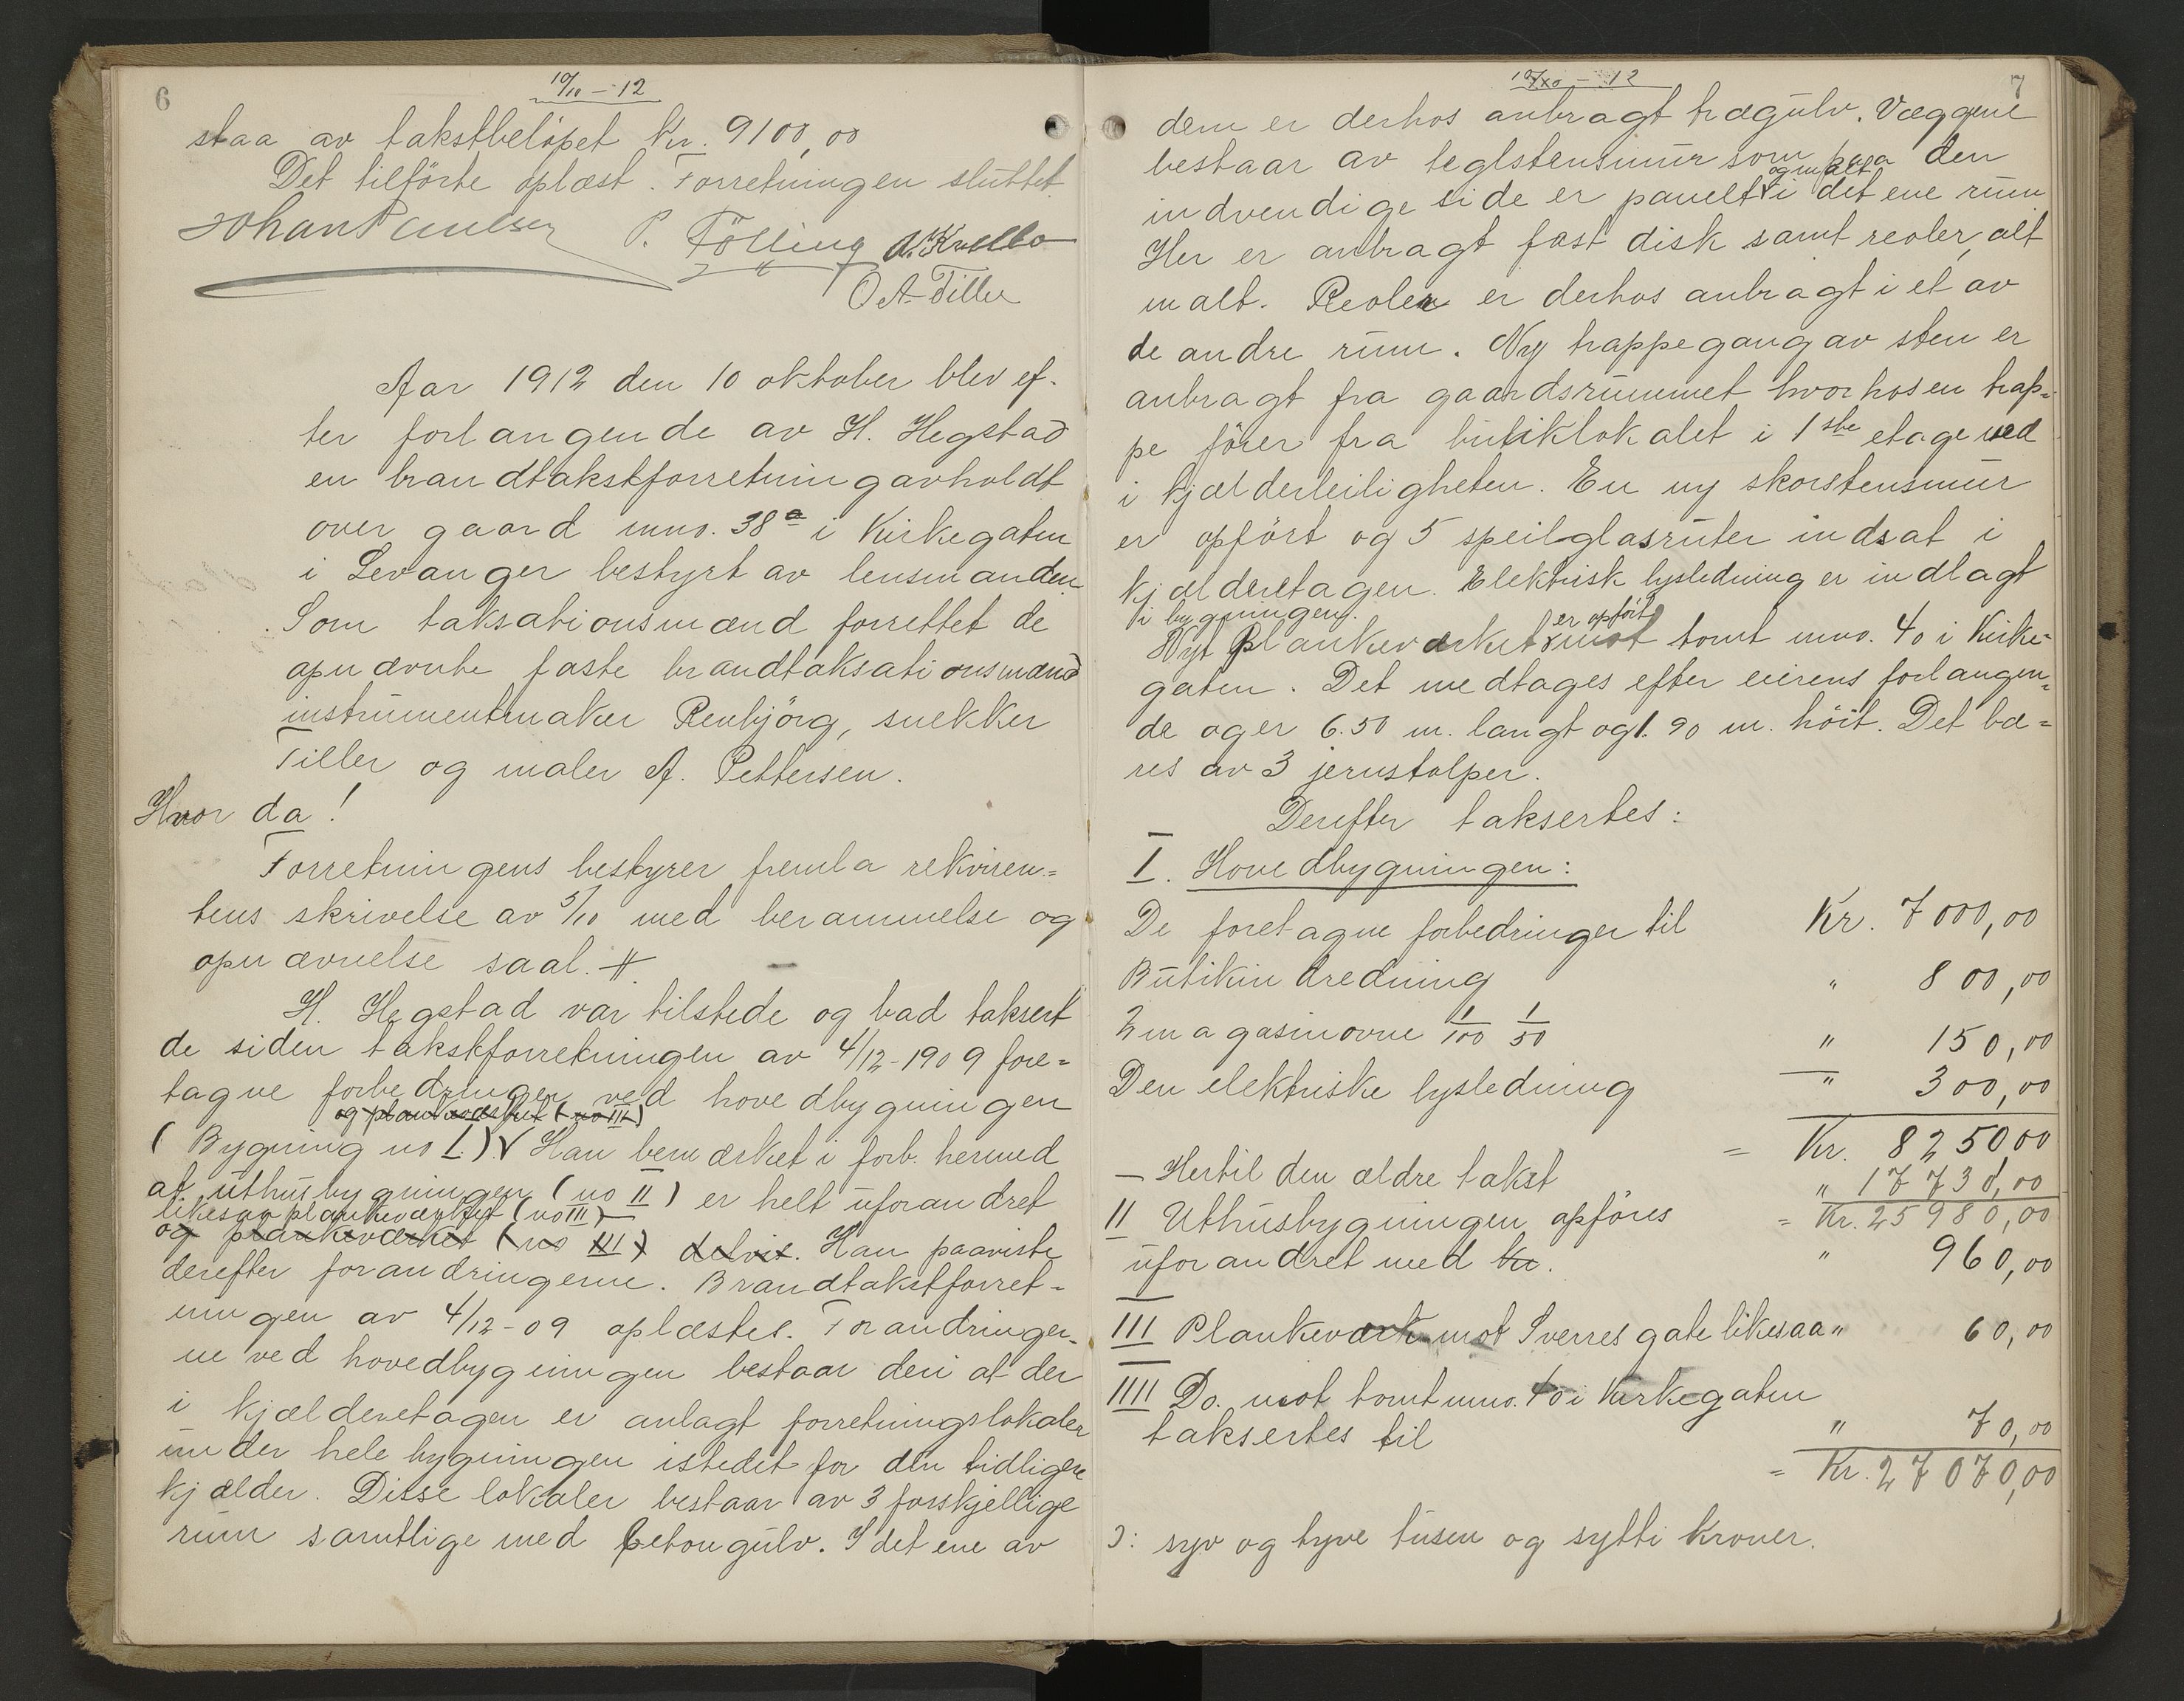 6
10/10 - 12
staa av takstbeløpet Kr. 9100,00
Det tilförte oplæst. Forretningen sluttet
Johan Paulsen P. Fölling A. Kvello
O A Tiller
Aar 1912 den 10 oktober blev ef-
ter forlangende av H. Hegstad
en brandtakstforretning avholdt
over gaard mno. 38a i Kirkegaten
i Levanger bestyrt av lensmanden
Som taksationsmænd forrettet de
opnævnte faste brandtaksationsmænd
instrumentmaker Renbjörg, snekker
Tiller og maler A. Pettersen.
Hvor da!
Forretningens bestyrer fremla rekviren=
tens skrivelse av 5/10 med berammelse og
opnævnelse saal.
H. Hegstad var tilstede og bad taksert
de siden takstforretningen av 4/12-1909 fore=
tagne forbedringer ved hovedbygningen
og plankeværket (no III)
(Bygning no I.) Han bemærket i forb. hermed
at uthusbygningen (no II) er helt uforandret
likesaa plankeværket (no III)
og plankeværket (no III) delvis. Han paaviste
derefter forandringerne. Brandtakstforret-
ningen av 4/12-09 oplæstes. Forandringer-
ne ved hovedbygningen bestaar deri at der
i kjælderetagen er anlagt forretningslokaler
under hele bygningen istedet for den tidligere
kjælder. Disse lokaler bestaar av 3 forskjellige
rum samtlige med betongulv. I det ene av
7
10/10 - 12
dem er derhos anbragt trægulv. Væggene
bestaar av teglstensmur som paa den
og malt
indvendige side er panelt i det ene rum
Her er anbragt fast disk samt reoler, alt
malt. Reoler er derhos anbragt i et av
de andre rum. Ny trappegang av sten er
anbragt fra gaardsrummet hvorhos en trap=
pe förer fra butiklokalet i 1ste etage ned
i kjælderleiligheten. En ny skorstensmur
er opfört og 5 speilglasruter indsat i
kjælderetagen. Elektrisk lysledning er indlagt
i bygningen.
er opfört
Nyt plankeverket mot tomt mno. 40 i Kirke-
gaten. Det medtages efter eierens forlangen=
de og er 6.50 m. langt og 1.90 m. höit. Det bæ=
res av 3 jernstolper.
Derefter taksertes:
I. Hovedbygningen:
De foretagne forbedringer til Kr. 7000,00
Butikindredning " 800,00
2 magasinovne 1/100 1/50 " 150,00
Den elektriske lysledning " 300,00
= Kr. 8250,00
- Hertil den ældre takst " 17730,00
= Kr. 25980,00
II Uthusbygningen opföres
uforandret med kr. " 960,00
III Plankeværk mot Sverres gate likesaa " 60,00
IIII Do. mot tomt mno. 40 i Kirkegaten
taksertes til " 70,00
= Kr. 27070,00
ɔ: syv og tyve tusen og sytti kroner.